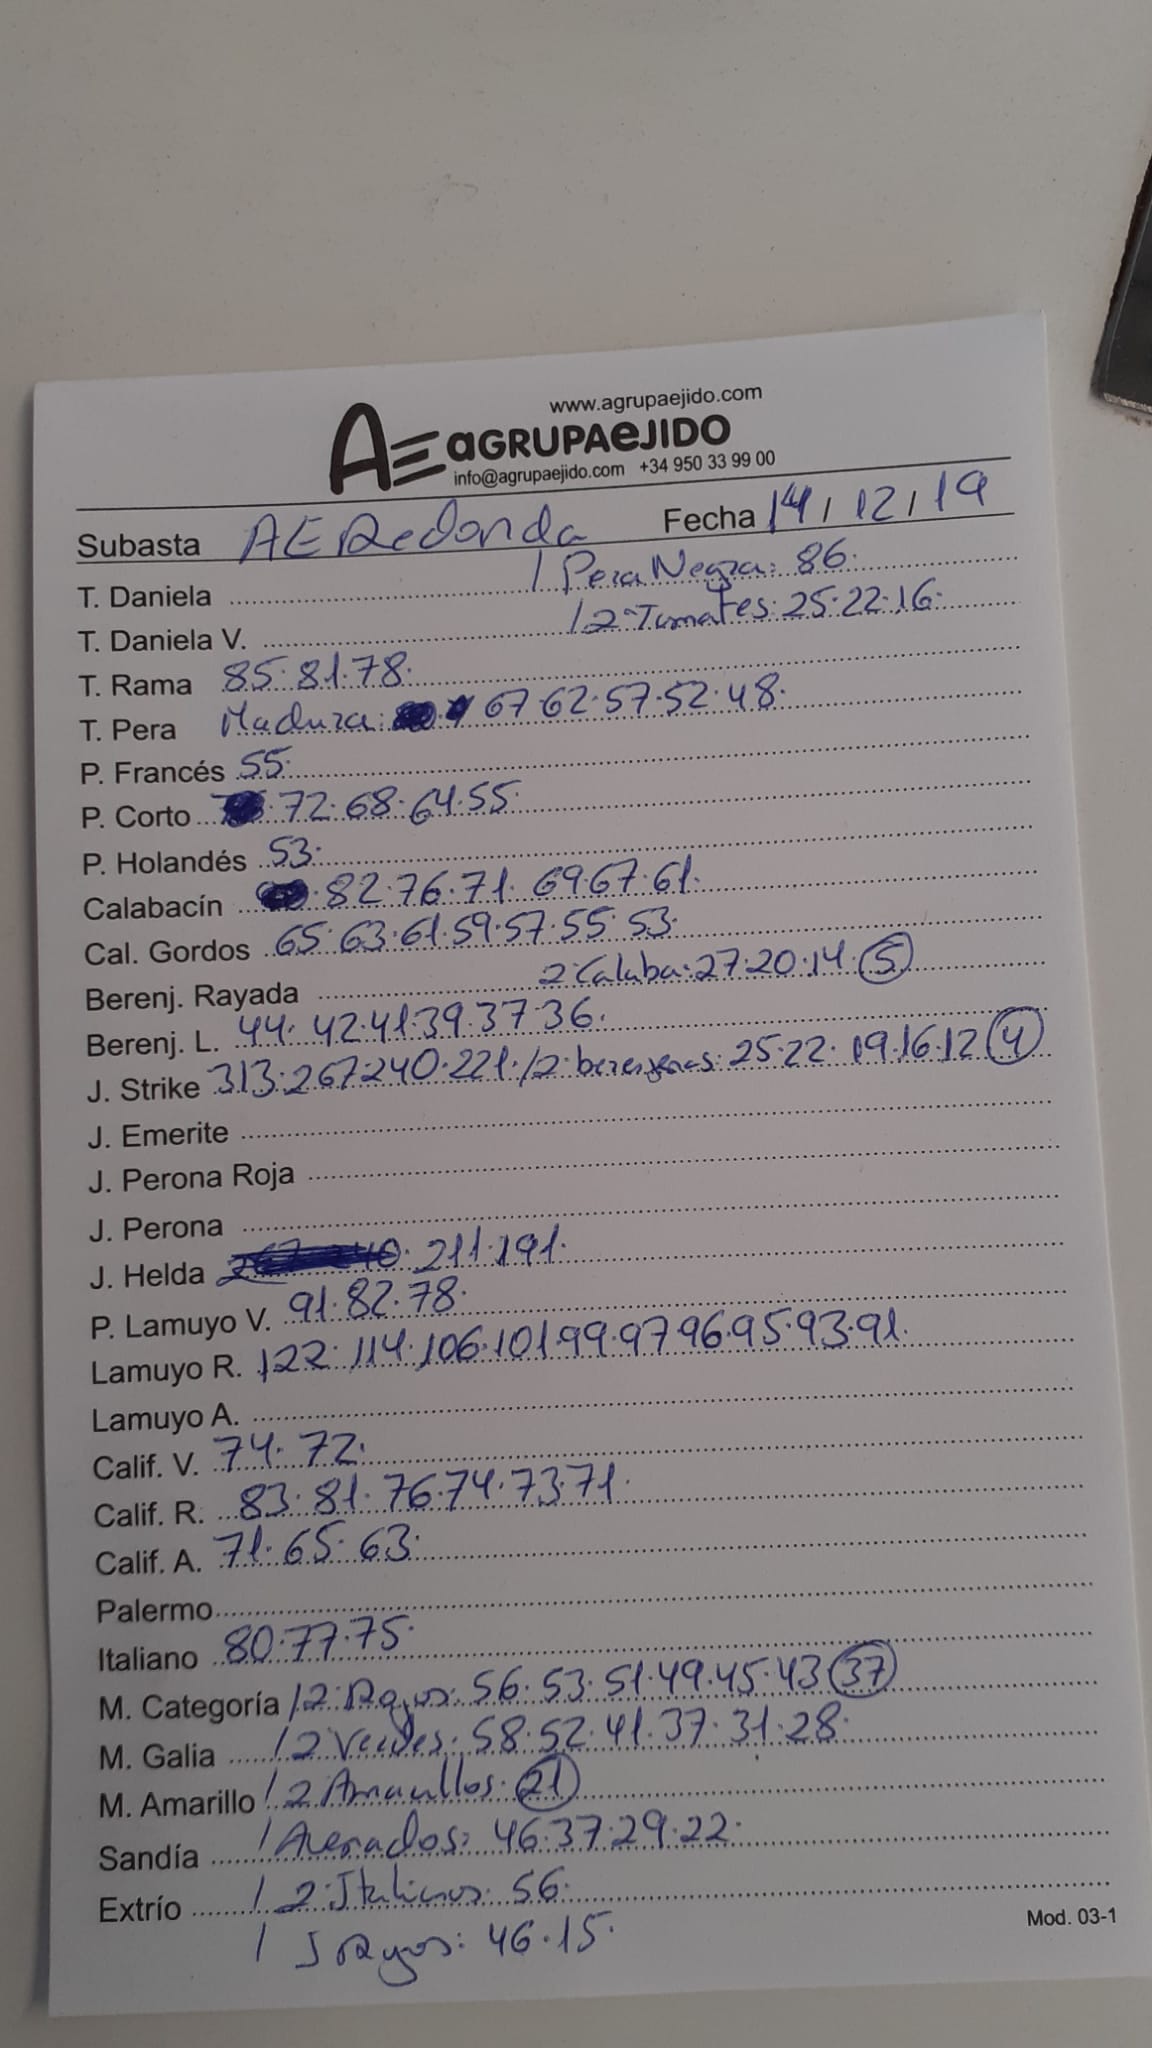 www.agrupaejido.com
AE aGRUPAeJIDO
info@agrupaejido.com +34 950 33 99 00
Subasta AE Redonda Fecha 14/12/19
T. Daniela / Pera Negra: 86.
T. Daniela V. / 2ª Tomates: 25.22.16.
T. Rama 85.81.78.
T. Pera Madura: 67 62.57.52.48.
P. Francés 55.
P. Corto 72.68.64.55.
P. Holandés 53.
Calabacín 82.76.71. 69.67.61.
Cal. Gordos 65.63.61.59.57.55.53.
Berenj. Rayada 2ª Calaba: 27.20.14. 5
Berenj. L. 44. 42.41.39.37.36.
J. Strike 313.267.240.221. / 2ª berenjenas: 25.22. 19.16.12 4
J. Emerite
J. Perona Roja
J. Perona
J. Helda 211.191.
P. Lamuyo V. 91.82.78.
Lamuyo R. 122.114.106.101.99.97.96.95.93.91.
Lamuyo A.
Calif. V. 74.72.
Calif. R. 83.81.76.74.73.71.
Calif. A. 71.65.63.
Palermo
Italiano 80.77.75.
M. Categoría / 2ª Rojos: 56.53.51.49.45.43 37
M. Galia / 2 Verdes: 58.52.41.37.31.28.
M. Amarillo / 2 Amarillos. 21
Sandía / Asurados: 46.37.29.22.
Extrío / 2ª Italianos: 56.
/ J Rojos: 46.15.
Mod. 03-1